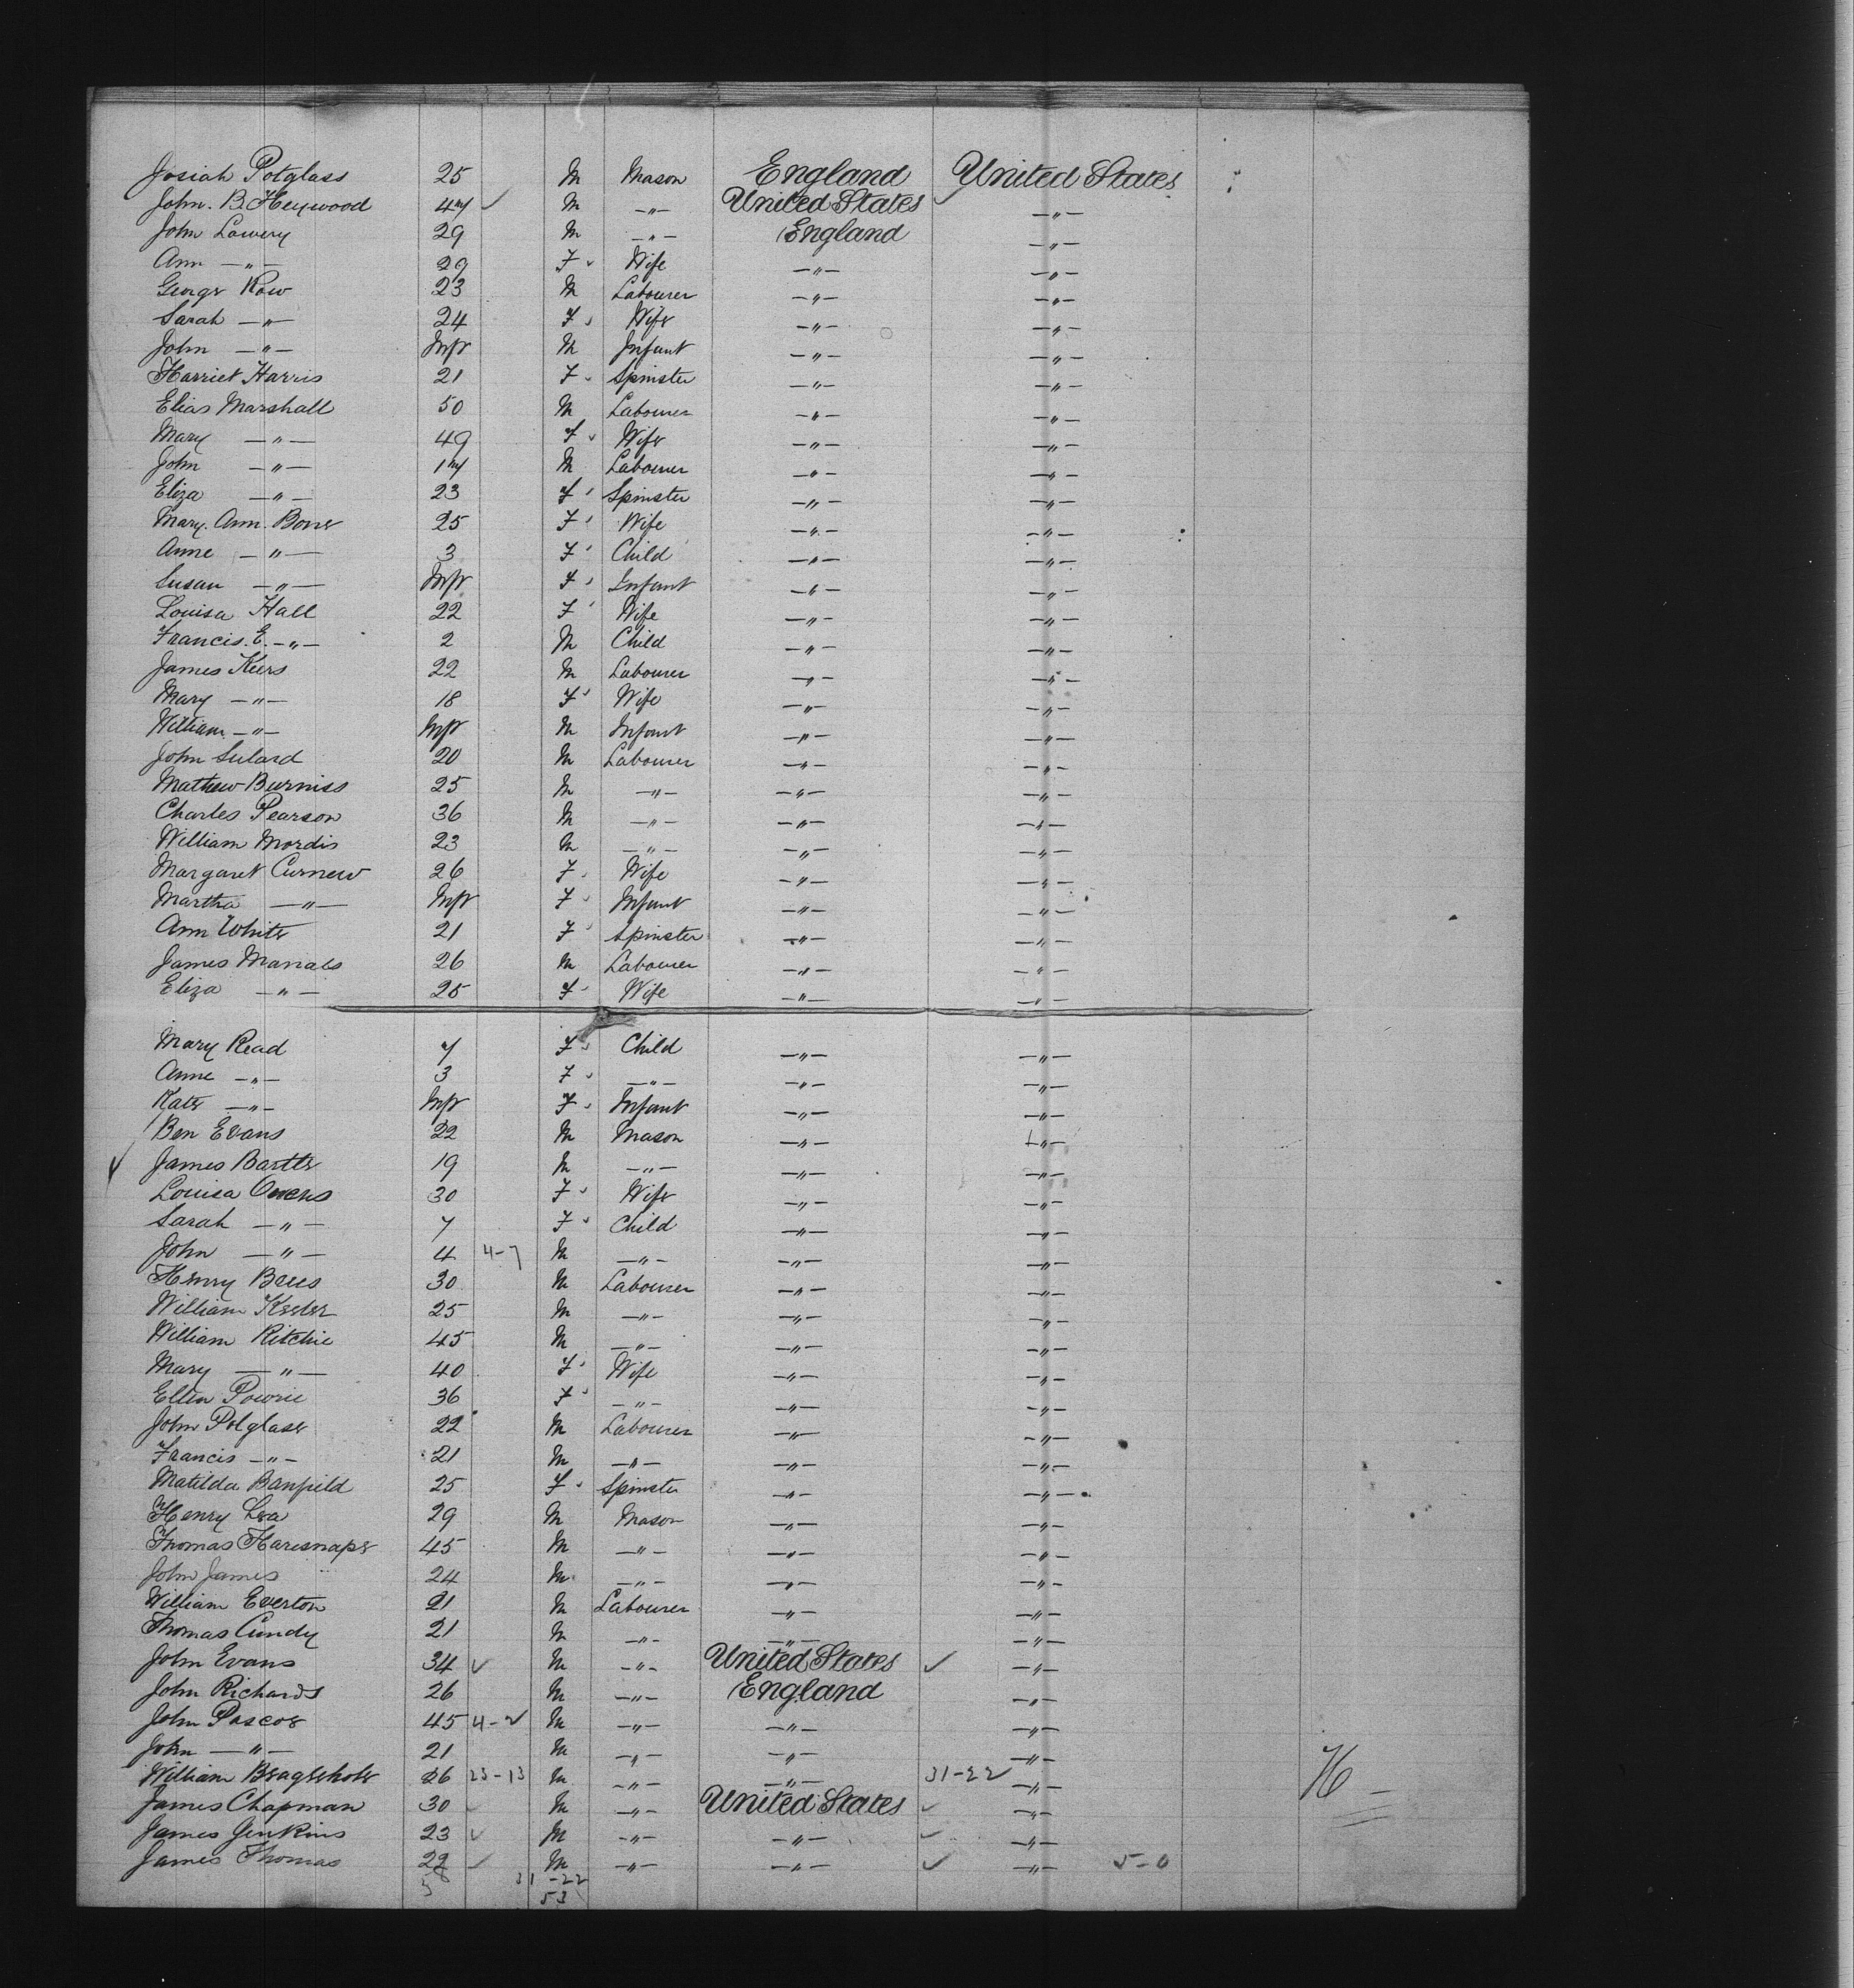 Josiah Polglass 25 M Mason England United States
John. B. Heywood 47 ✓ M —"— United States ✓ —"—
John Lowery 29 M —"— England —"—
Ann —"— 29 F Wife —"— —"—
George Row 23 M Labourer —"— —"—
Sarah —"— 24 F Wife —"— —"—
John —"— Inft M Infant —"— —"—
Harriet Harris 21 F Spinster —"— —"—
Elias Marshall 50 M Labourer —"— —"—
Mary —"— 49 F Wife —"— —"—
John —"— 17 M Labourer —"— —"—
Eliza —"— 23 F Spinster —"— —"—
Mary. Ann. Bone 25 F Wife —"— —"—
Anne —"— 3 F Child —"— —"—
Susan —"— Inft F Infant —"— —"—
Louisa Hall 22 F Wife —"— —"—
Francis. E. —"— 2 M Child —"— —"—
James Keers 22 M Labourer —"— —"—
Mary —"— 18 F Wife —"— —"—
William —"— Inft M Infant —"— —"—
John 20 M Labourer —"— —"—
Mathew Burniss 25 M —"— —"— —"—
Charles Pearson 36 M —"— —"— —"—
William Mordis 23 M —"— —"— —"—
Margaret Curnew 26 F Wife —"— —"—
Martha —"— Inft F Infant —"— —"—
Ann White 21 F Spinster —"— —"—
James 26 M Labourer —"— —"—
Eliza —"— 25 F Wife —"— —"—
Mary Read 7 F Child —"— —"—
Anne —"— 3 F —"— —"— —"—
Kate —"— Inft F Infant —"— —"—
Ben Evans 22 M Mason —"— —"—
✓ James Bartle 19 M —"— —"— —"—
Louisa Owens 30 F Wife —"— —"—
Sarah —"— 7 F Child —"— —"—
John —"— 4 4-7 M —"— —"— —"—
Henry 30 M Labourer —"— —"—
William Keeler 25 M —"— —"— —"—
William Ritchie 45 M —"— —"— —"—
Mary —"— 40 F Wife —"— —"—
Ellen Powrie 36 F —"— —"— —"—
John Polglase 22 M Labourer —"— —"—
Francis —"— 21 M —"— —"— —"—
Matilda Banfield 25 F Spinster —"— —"—
Henry Lea 29 M Mason —"— —"—
Thomas Haresnape 45 M —"— —"— —"—
John James 24 M —"— —"— —"—
William Everton 21 M Labourer —"— —"—
Thomas Cundy 21 M —"— —"— —"—
John Evans 34 ✓ M —"— United States ✓ —"—
John Richards 26 M —"— England —"—
John Pascoe 45 4-2 M —"— —"— —"—
John —"— 21 M —"— —"— —"—
William 26 23-13 M —"— —"— 31-22 —"—
James Chapman 30 ✓ M —"— United States ✓ —"—
James Jenkins 23 ✓ M —"— —"— ✓ —"—
James Thomas 22 ✓ M —"— —"— ✓ —"— 5-0
58 31-22
53